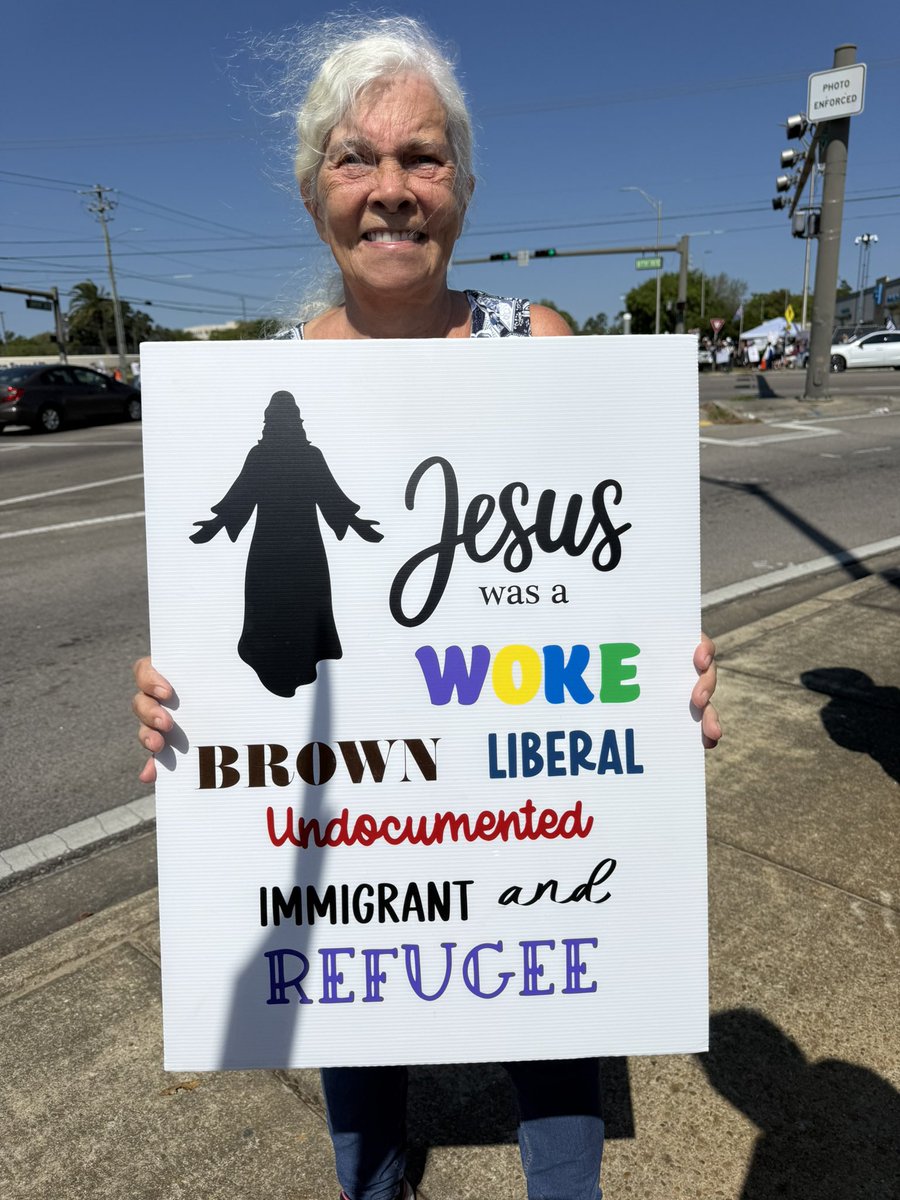 PHOTO
ENFORCED
Jesus
was a
WOKE
BROWN LIBERAL
Undocumented
IMMIGRANT and
REFUGEE